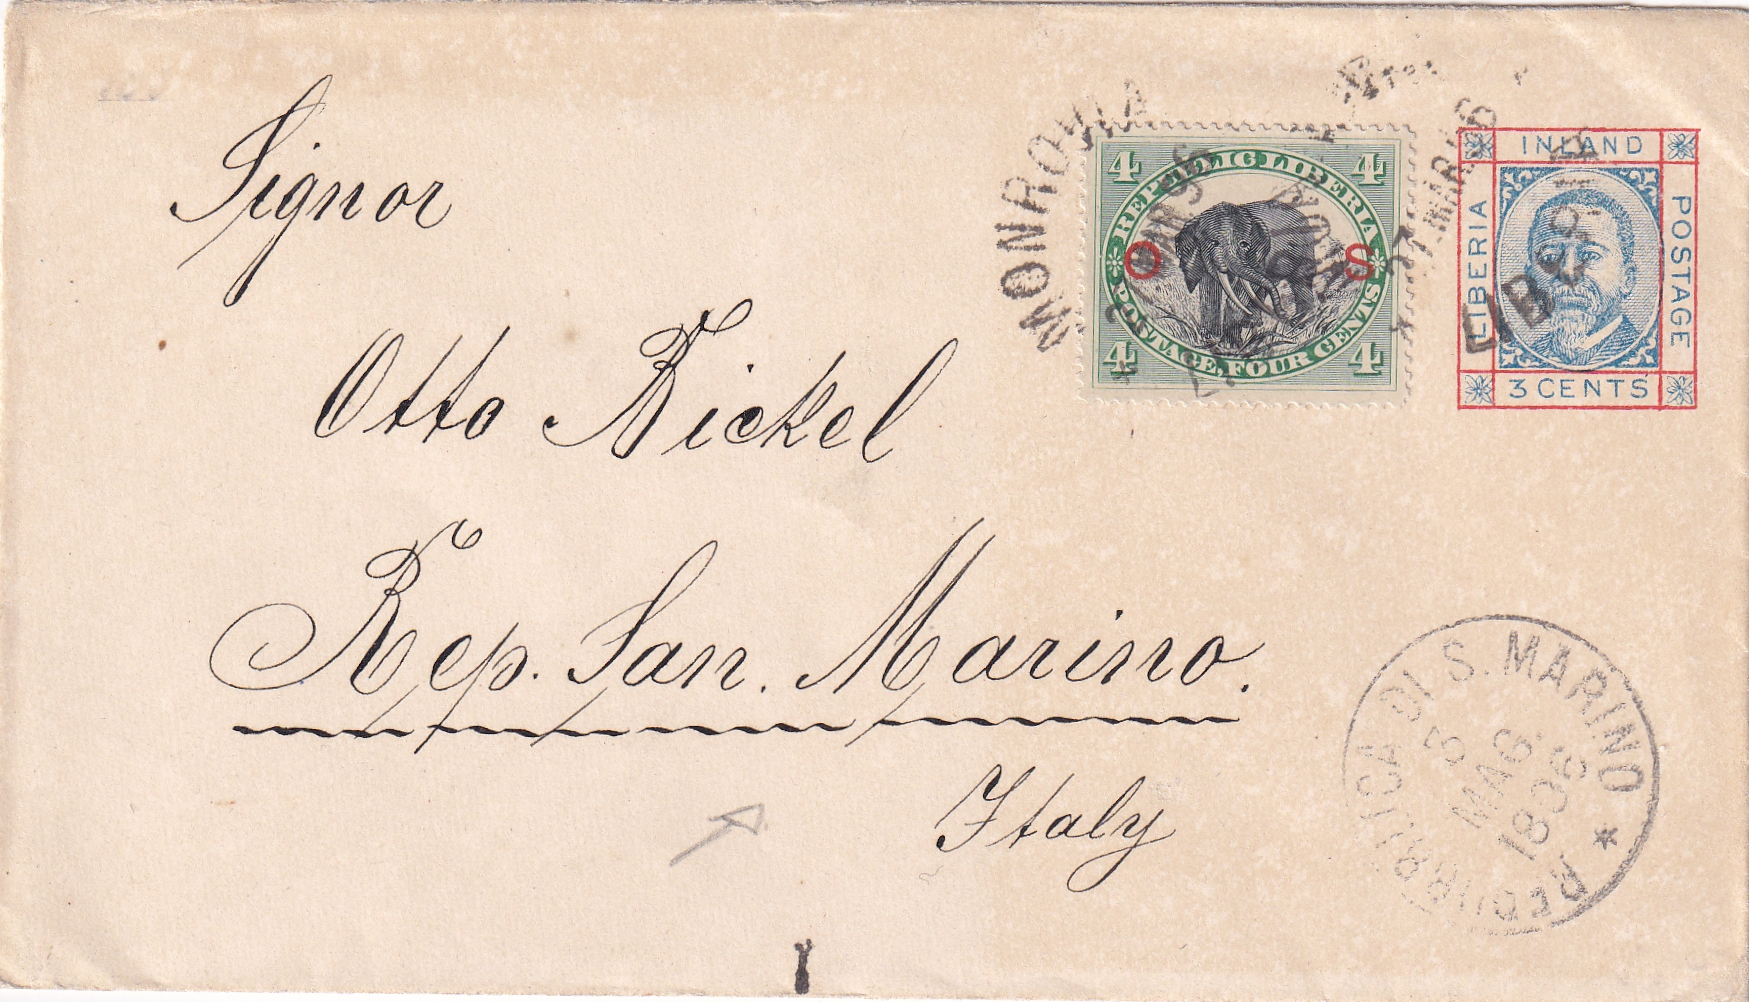 Signor
Otto Bickel
Rep. San. Marino.
Italy
MONROVIA
4 REPUBLIC LIBERIA 4
O S
4 POSTAGE, FOUR CENTS 4
INLAND
LIBERIA
POSTAGE
3 CENTS
REPUBBLICA DI S. MARINO
5
MAG.